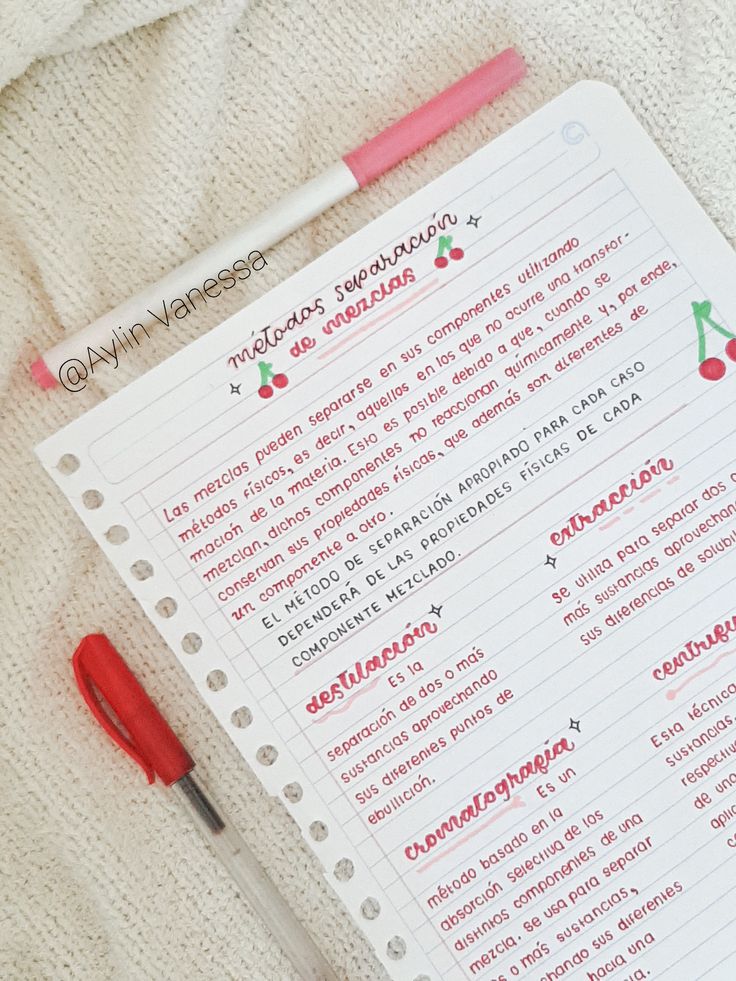 métodos separación
de mezclas
@Aylin Vanessa
Las mezclas pueden separarse en sus componentes utilizando
métodos físicos, es decir, aquellos en los que no ocurre una transfor-
mación de la materia. Esto es posible debido a que, cuando se
mezclan, dichos componentes no reaccionan químicamente y, por ende,
conservan sus propiedades físicas, que además son diferentes de
un componente a otro.
EL MÉTODO DE SEPARACIÓN APROPIADO PARA CADA CASO
DEPENDERÁ DE LAS PROPIEDADES FÍSICAS DE CADA
COMPONENTE MEZCLADO.
destilación
Es la
separación de dos o más
sustancias aprovechando
sus diferentes puntos de
ebullición.
extracción
se utiliza para separar dos o
más sustancias aprovechando
sus diferencias de
cromatografía
Es un
método basado en la
absorción selectiva de los
distintos componentes de una
mezcla. Se usa para separar
o más sustancias,
sus diferentes
hacia una
Esta técnica
sustancias,
de una